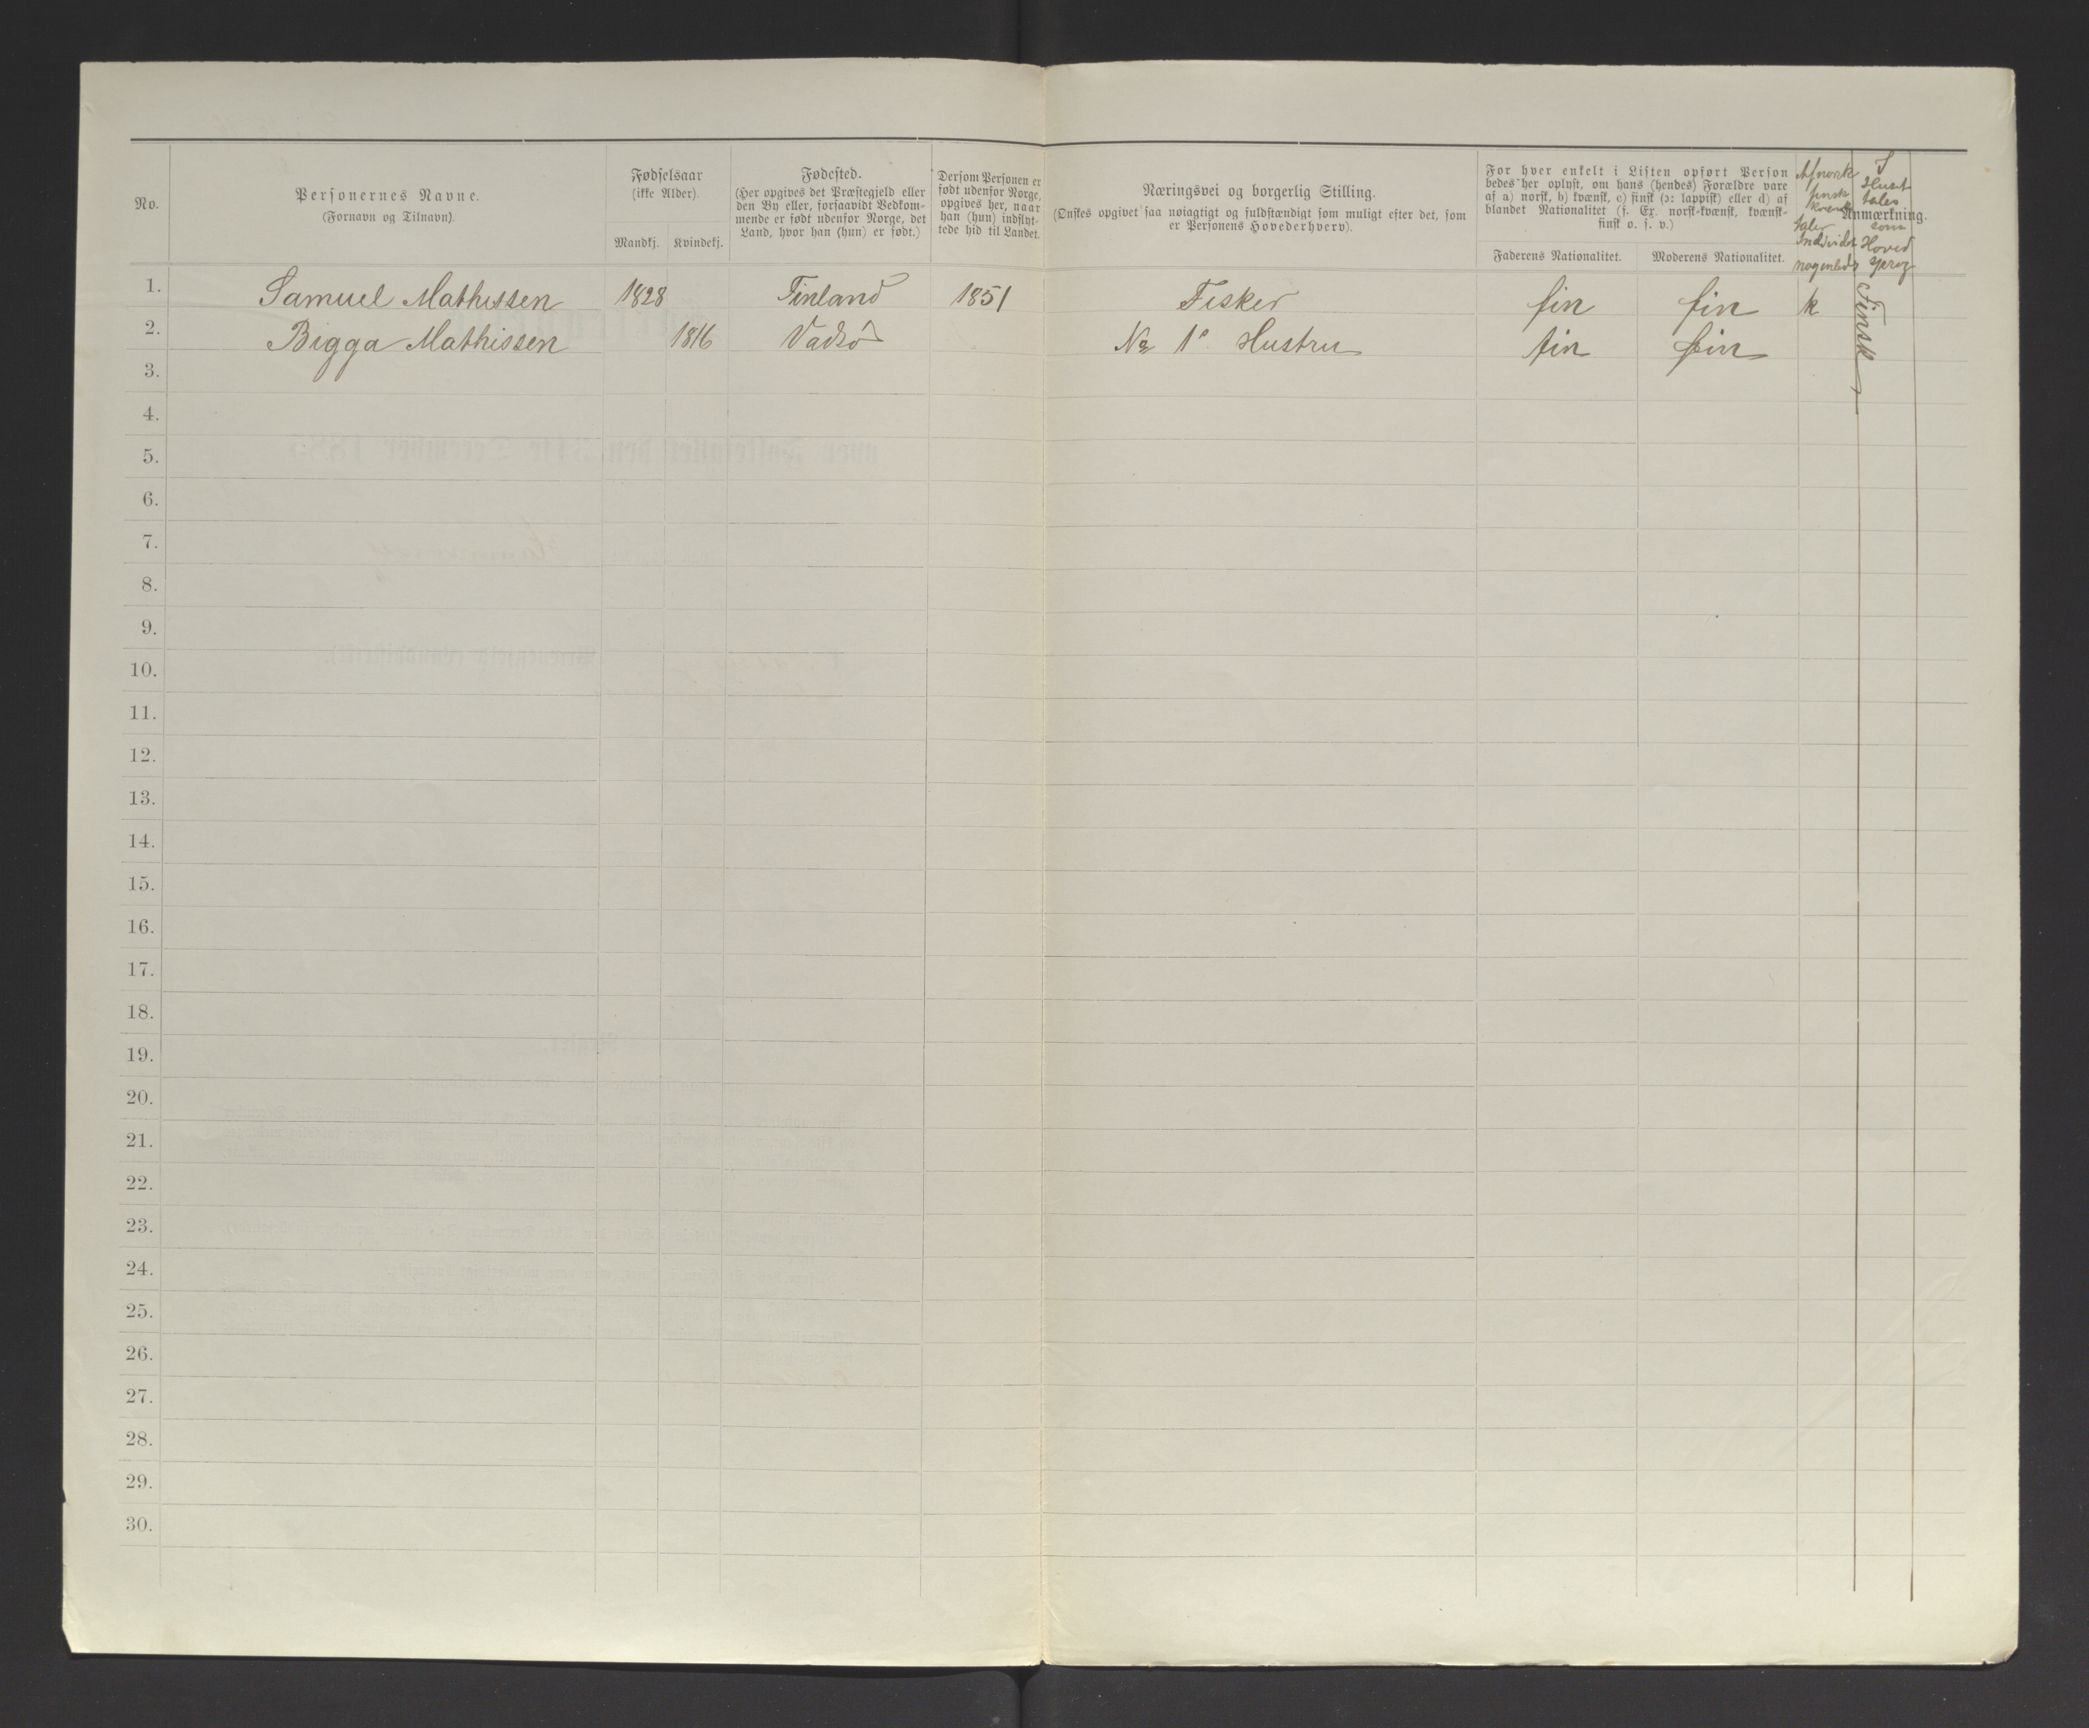 No.
Personernes Navne.
(Fornavn og Tilnavn).
Fødselsaar
(ikke Alder).
Mandkj. Kvindekj.
Fødested.
(Her opgives det Præstegjeld eller
den By eller, forsaavidt Vedkom-
mende er født udenfor Norge, det
Land, hvor han (hun) er født.)
Dersom Personen er
født udenfor Norge,
opgives her, naar
han (hun) indflyt-
tede hid til Landet.
Næringsvei og borgerlig Stilling.
(Ønskes opgivet saa nøiagtigt og fuldstændigt som muligt efter det, som
er Personens Hovederhverv).
For hver enkelt i Listen opført Person
bedes her oplyst, om hans (hendes) Forældre vare
af a) norsk, b) kvænsk, c) finsk (ɔ: lappisk) eller d) af
blandet Nationalitet (f. Ex. norsk-kvænsk, kvænsk-
finsk o. s. v.)
Faderens Nationalitet. Moderens Nationalitet.
Af norsk
finsk
kvensk
taler
Individet
nogenlede
Anmærkning.
I
Huset
tales
som
Hoved
sprog
1. Samuel Mathissen 1828 Finland 1851 Fisker fin fin k
Finsk
2. Bigga Mathissen 1816 Vadsø No 1s Hustru fin fin
3.
4.
5.
6.
7.
8.
9.
10.
11.
12.
13.
14.
15.
16.
17.
18.
19.
20.
21.
22.
23.
24.
25.
26.
27.
28.
29.
30.